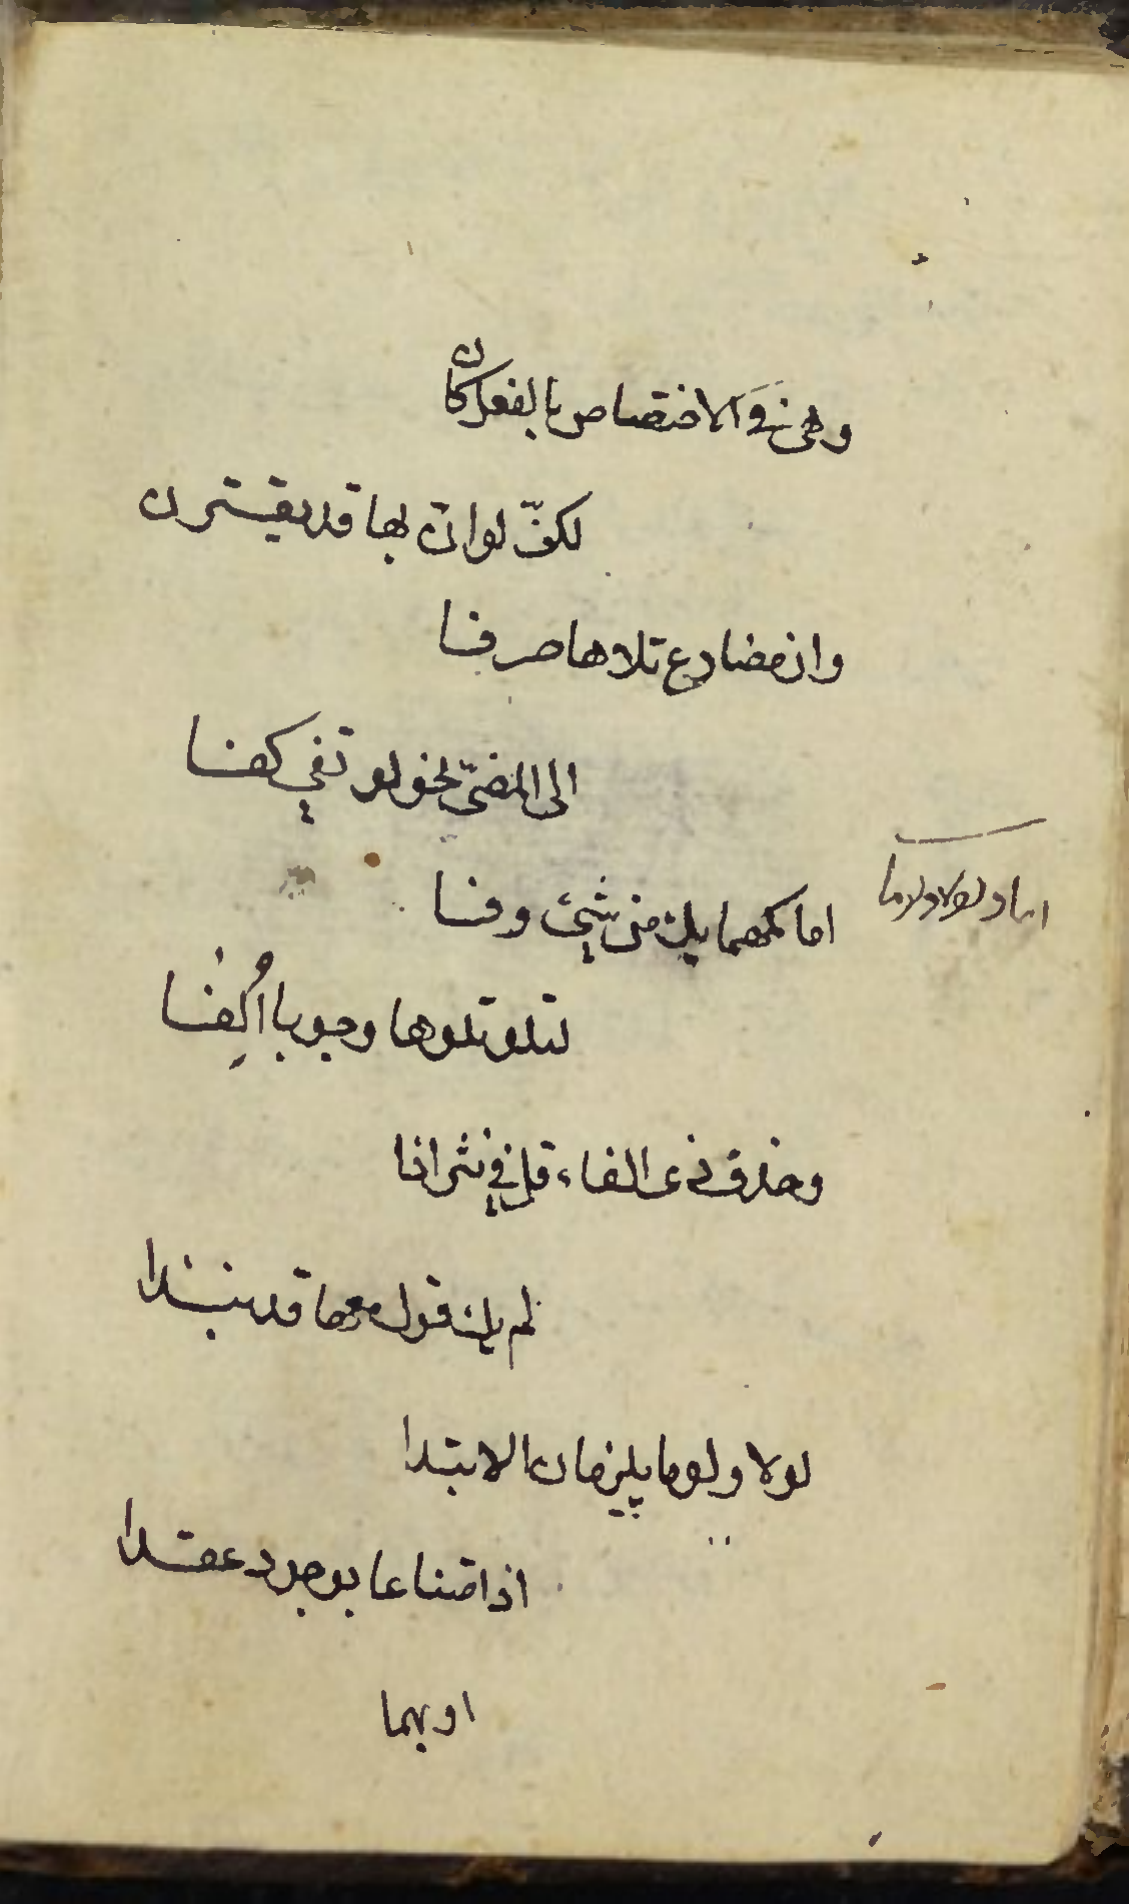 وهي في الاختصاص بالفعل كان
لكنّ لو انّ بها قد يقترن
وان مضارع تلاها صرفا
الى المضيّ نحو لو يفي كفا
اما ولولا ولوما
اما كمهما يك من شيئ وفا
لتلو تلوها وجوبا اُلِفَا
وحذف ذي الفاء قل في نثر اذا
لم يك قول معها قد نبذا
لولا ولوما يلزمان الابتدا
اذا امتناعا بوجود عقدا
او بهما